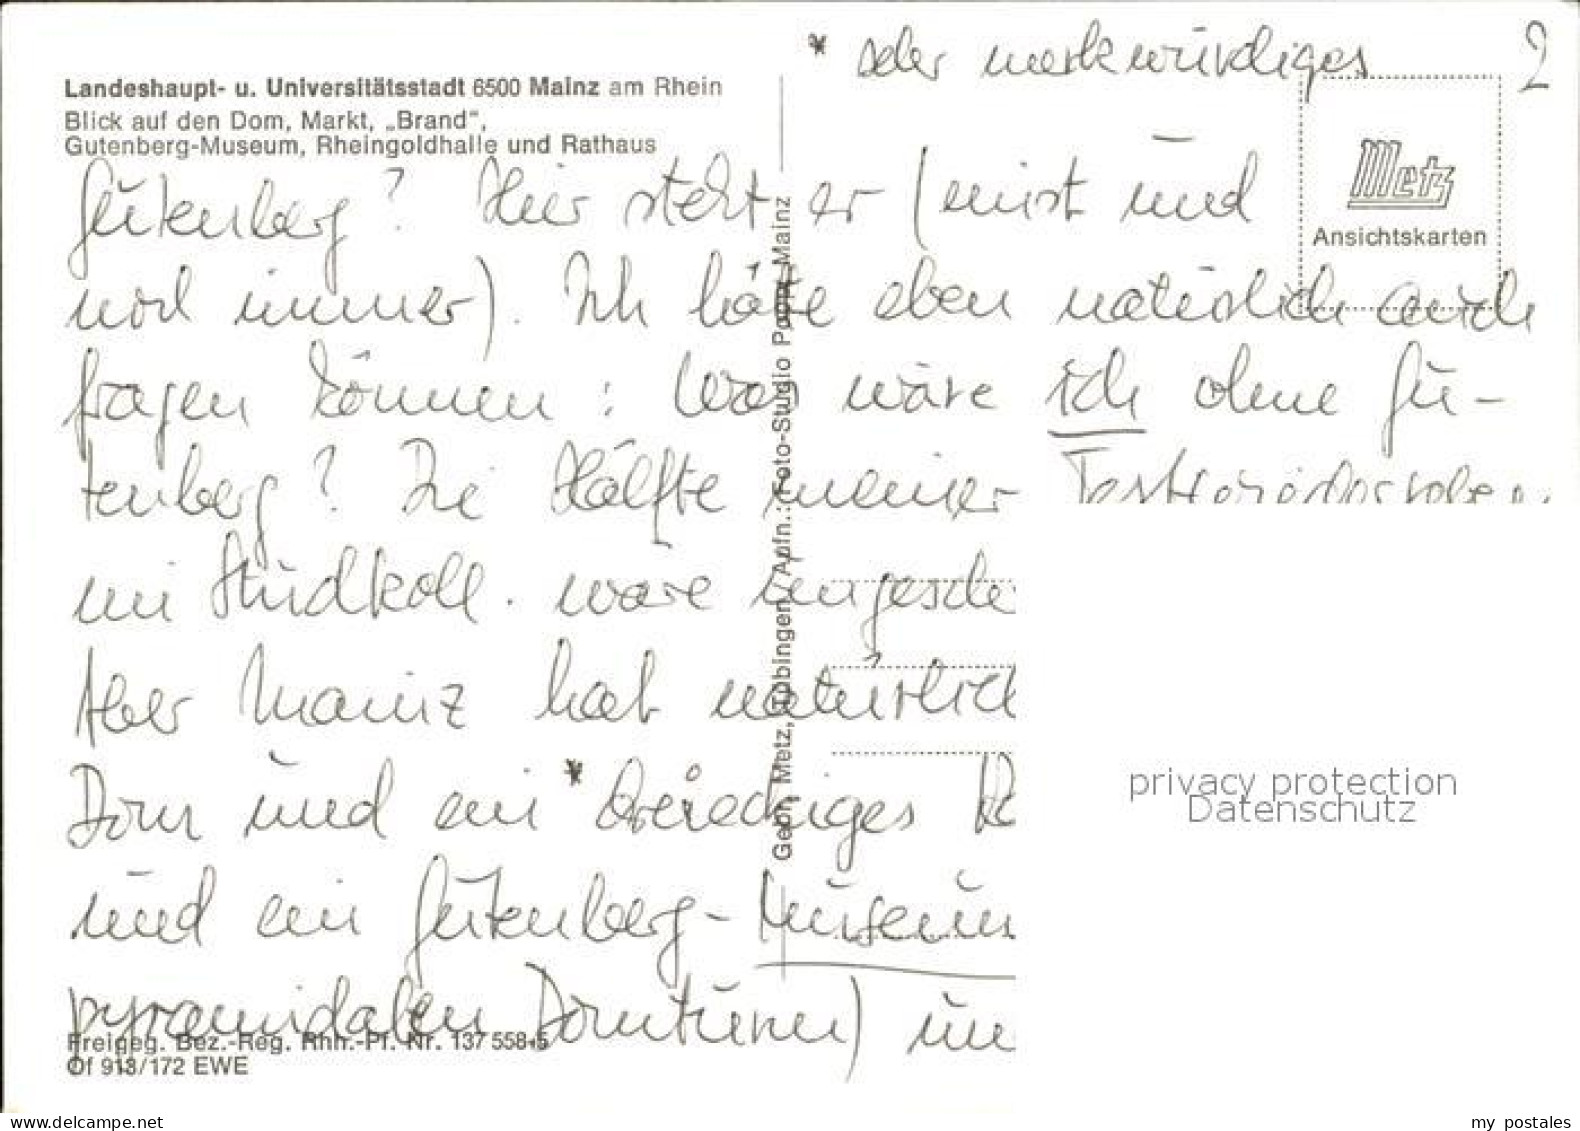 * oder merkwürdiges
2
Landeshaupt- u. Universitätsstadt 6500 Mainz am Rhein
Blick auf den Dom, Markt, „Brand",
Gutenberg-Museum, Rheingoldhalle und Rathaus
Metz
Ansichtskarten
Gutenberg? Hier steht er (meist und
noch immer). Ich hätte eben natürlich auch
fragen können: Was wäre ich ohne Gu-
tenberg? Die Hälfte meiner
im Studkoll. wäre
Aber Mainz hat natürlich
Dom und ein * dreieckiges
und ein Gutenberg-Museum
pyramidalen Domturm)
Gebr. Metz, Tübingen Aufn.: Foto-Studio Popp, Mainz
privacy protection
Datenschutz
Freigeg. Bez.-Reg. Rhh.-Pf. Nr. 137 558-5
Of 913/172 EWE
www.delcampe.net
my_postales